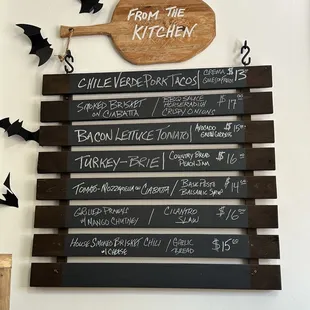 FROM THE
KITCHEN
CHILE VERDE PORK TACOS | CREMA $13
SMOKED BRISKET BBQ SAUCE $17
ON CIABATTA HORSERADISH
CRISPY ONIONS
BACON LETTUCE TOMATO | AVOCADO $15
TURKEY-BRIE / COUNTRY BREAD $16
PEACH JAM
TOMATO-MOZZARELLA ON CIABATTA / BASIL PESTO $14
BALSAMIC
GRILLED PRAWNS / CILANTRO $16
MANGO CHUTNEY SLAW
HOUSE SMOKED BRISKET CHILI / GARLIC $15
BREAD